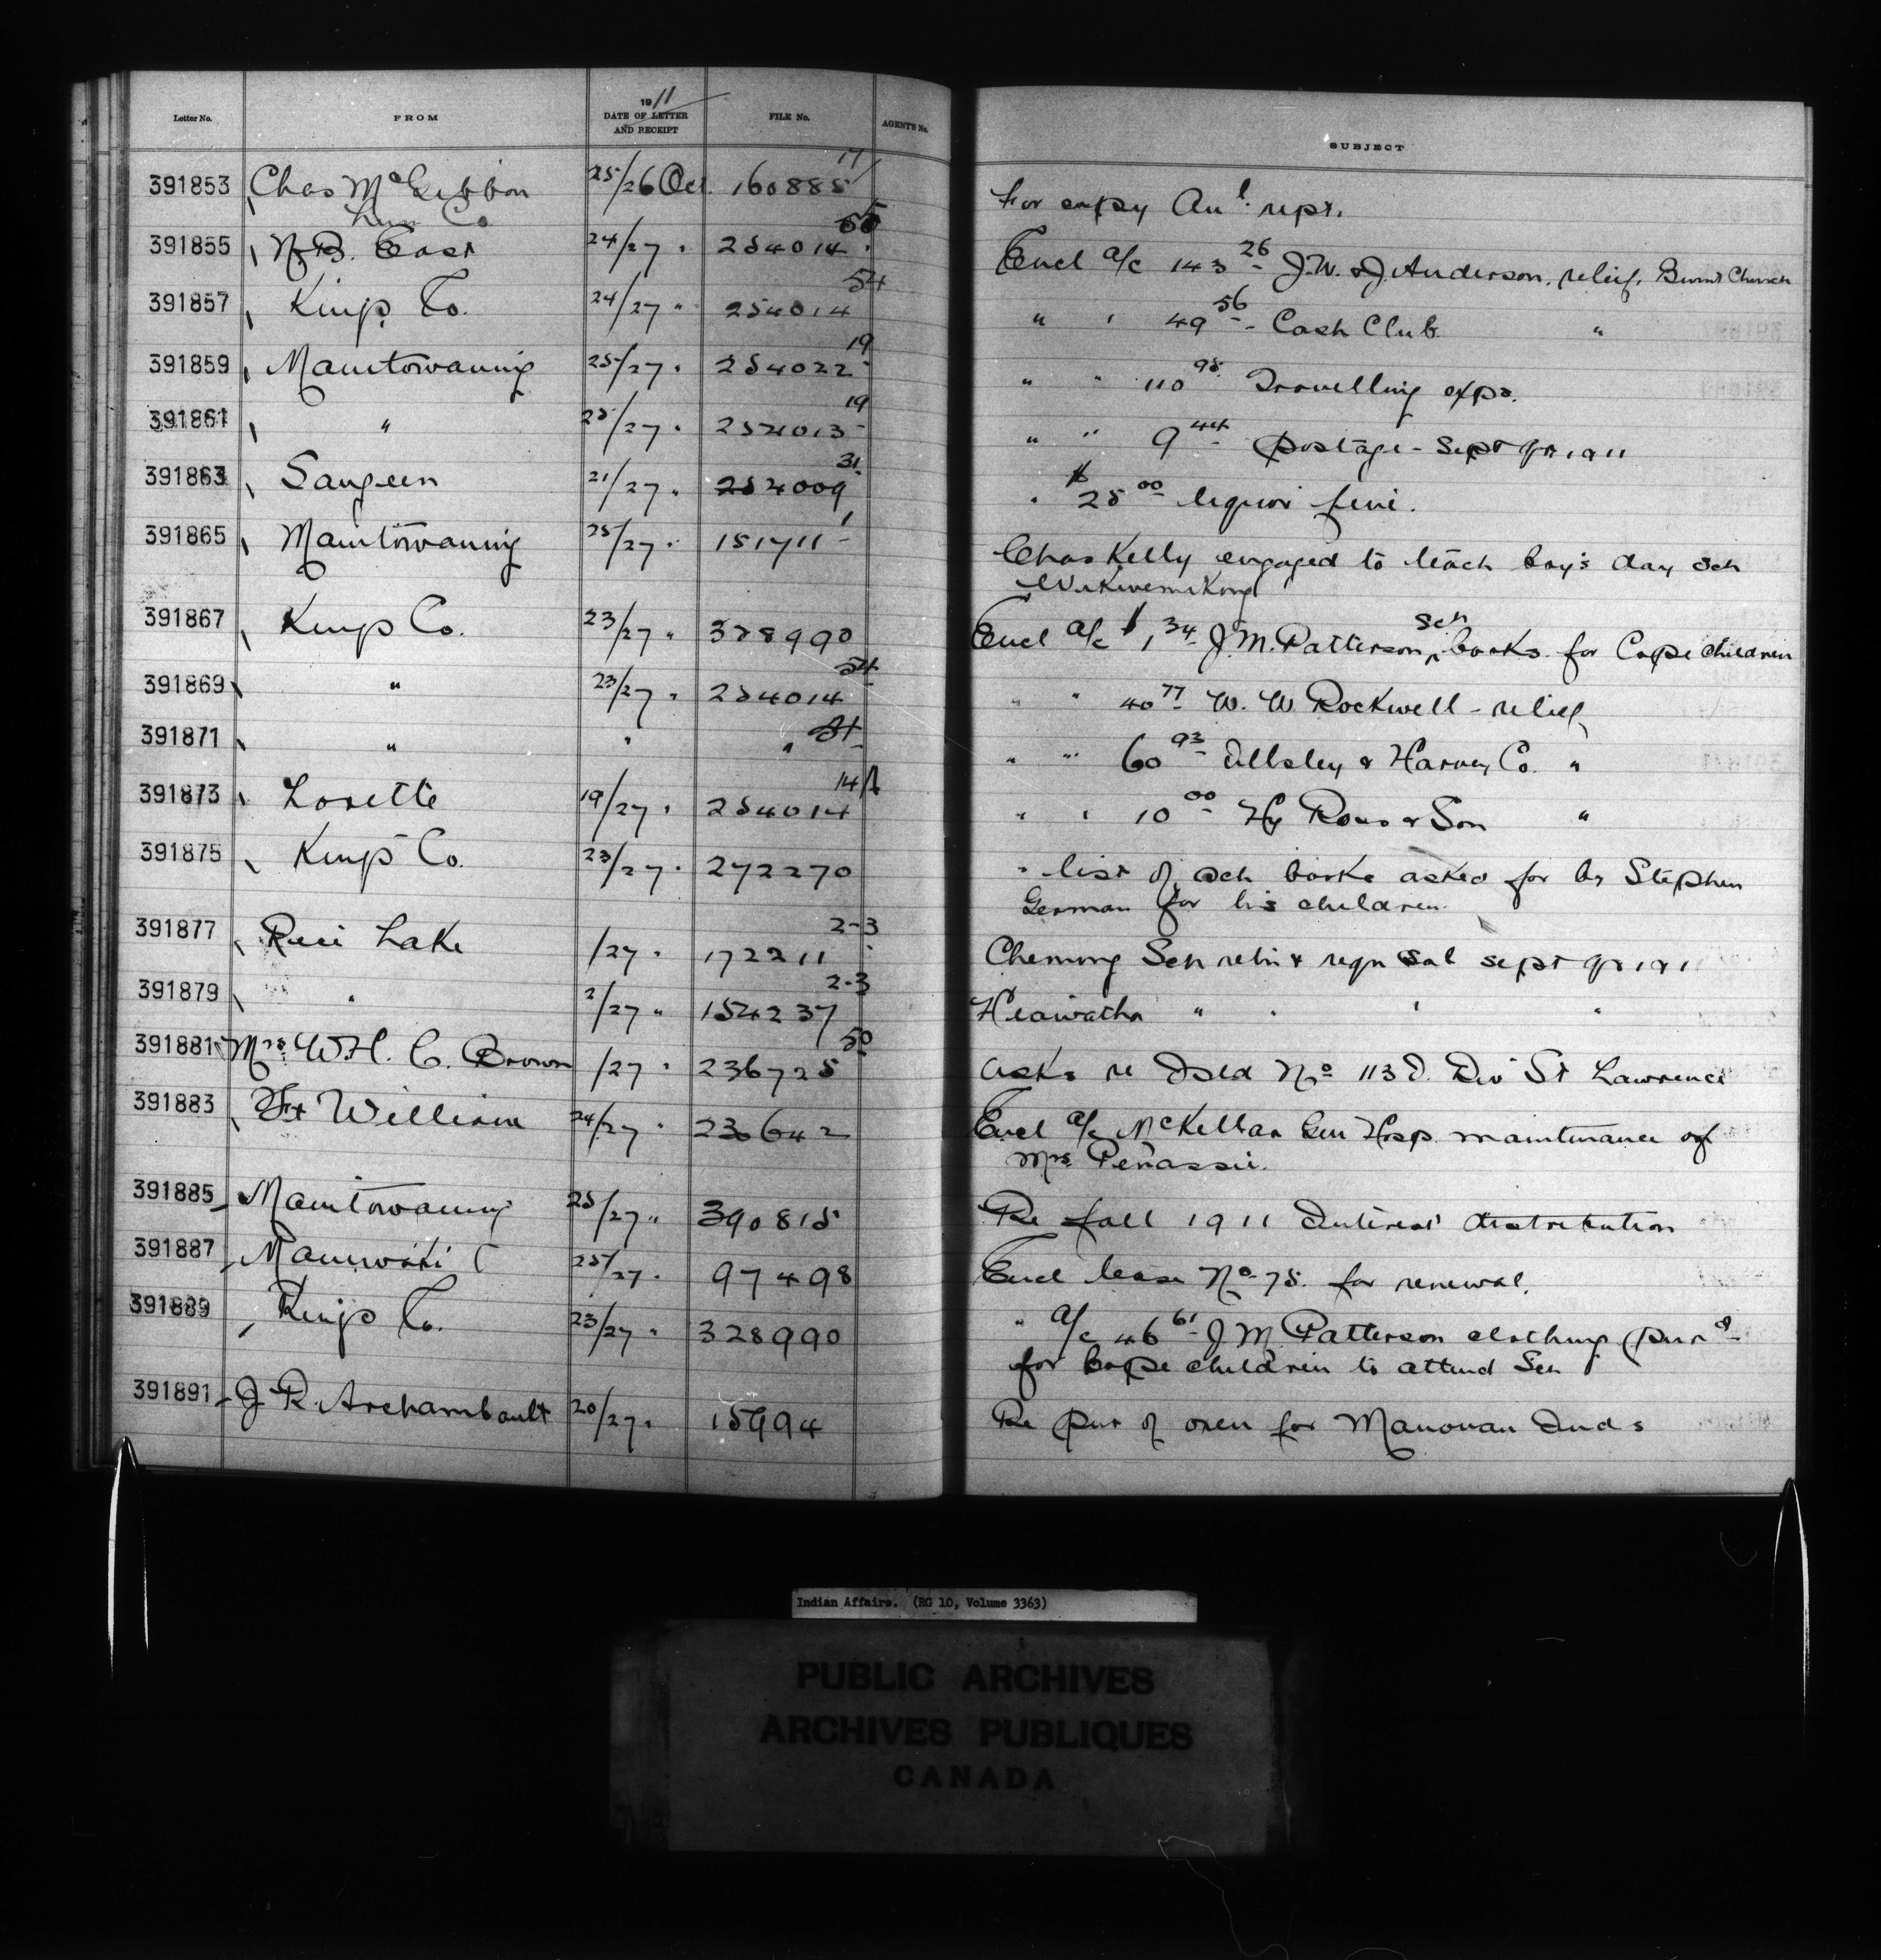 Letter No. FROM 1911 DATE OF LETTER AND RECEIPT FILE No. AGENT'S No. SUBJECT
391853 Chas McGibbon Lum Co 25/26 Oct. 160885 17 For copy Anl. rept.
391855 N.B. East 24/27 " 254014 Encl a/c 143 26 J.W. & J. Anderson, relief, Burnt Church
391857 Kings Co. 24/27 " 254014 54 " " 49 56 - Cash Club "
391859 Manitowaning 25/27 " 254022 19 " " 110 98 Travelling exps.
391861 " 25/27 " 254013 19 " " 9 44 postage - Sept qr 1911
391863 Saugeen 21/27 " 254009 31 " $25 00 liquor fine.
391865 Manitowaning 25/27 " 151711 1 Chas Kelly engaged to teach boy's day sch
Wikwemikong
391867 Kings Co. 23/27 " 328990 Encl a/c $1,34 J.M. Patterson, sch books for Cope children
391869 " 23/27 " 254014 54 " " 40 77 W. W. Rockwell - relief
391871 " " " 54 " " 60 93 Illsley & Harvey Co. "
391873 Lorette 19/27 " 254014 14 " " 10 00 Hy Ross & Son "
391875 Kings Co. 23/27 " 272270 " list of sch books asked for by Stephen
German for his children.
391877 Rice Lake /27 " 172211 2-3 Chemong Sch retn & reqn Sal sept qr 1911
391879 " 2/27 " 154237 2-3 Hiawatha " " " "
391881 Mrs. W.H. C. Brown /27 " 236725 50 Asks re Isld No 113 D. Div St Lawrence
391883 Ft William 24/27 " 230642 Encl a/c McKellar Gen Hosp. maintenance of
Mrs. Penassie.
391885 Manitowaning 25/27 " 390815 Re fall 1911 Interest distribution
391887 Maniwaki 25/27 " 97498 Encl lease No 75. for renewal.
391889 Kings Co. 23/27 " 328990 " a/c 46 61 J M Patterson clothing purd
for Cope children to attend Sch
391891 J R. Archambault 20/27 " 15994 Re pur of oxen for Manouan Inds
Indian Affairs. (RG 10, Volume 3363)
PUBLIC ARCHIVES
ARCHIVES PUBLIQUES
CANADA